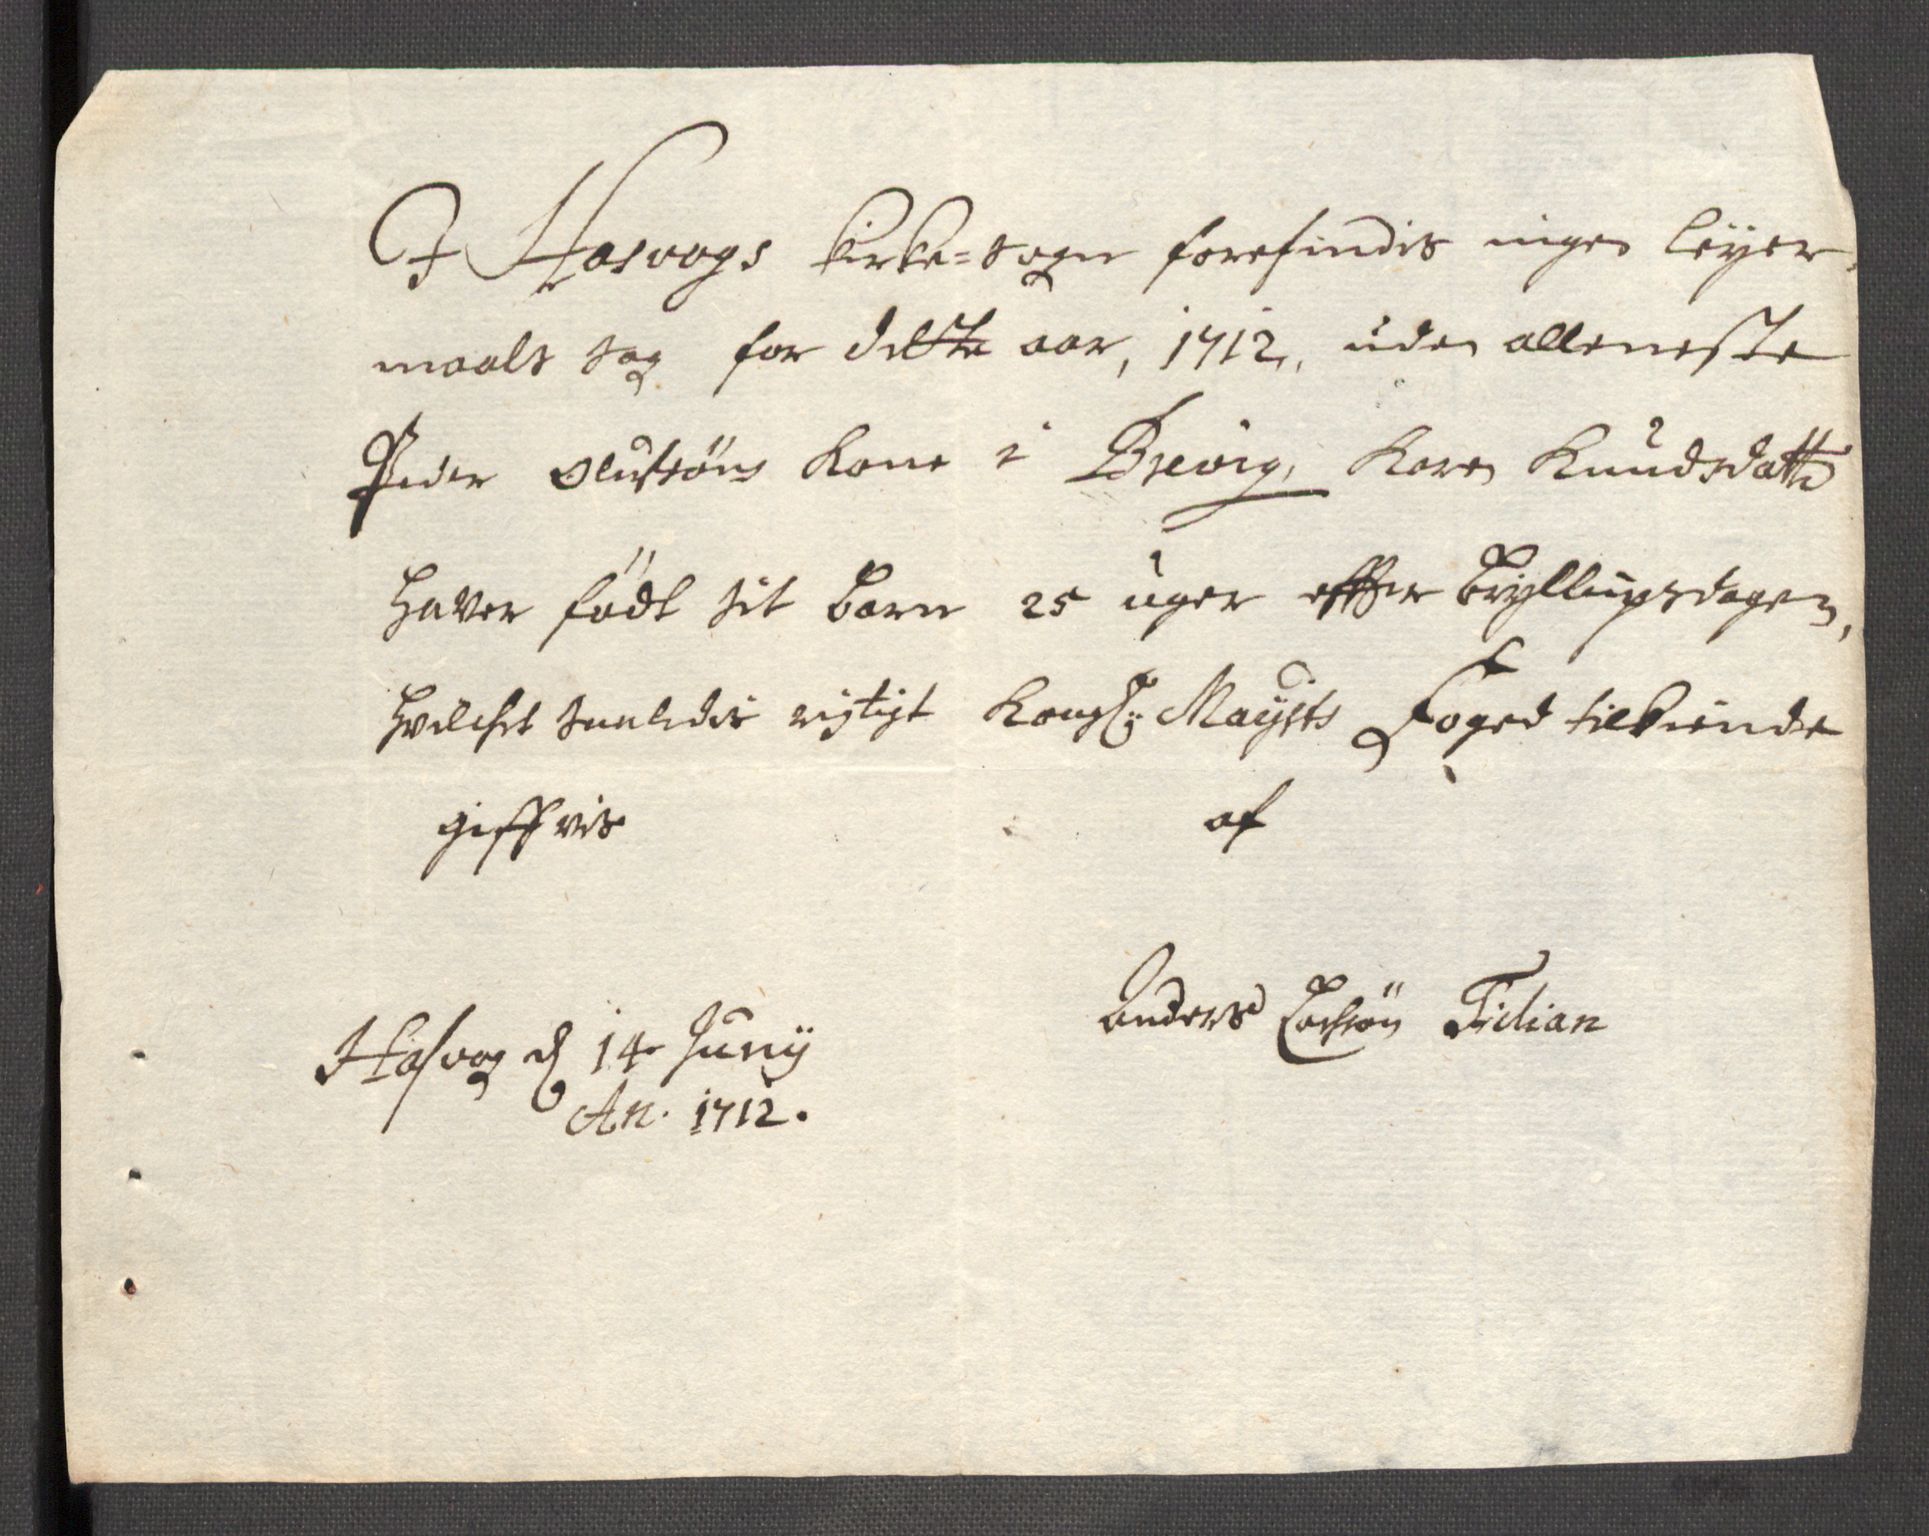 I Hasvogs kirke=sogn forefindis ingen leyer,
maals sag for dette aar, 1712, uden alleneste
Peder Olufsöns Kone i Brevig, Karen Knudsdatter
haver födt sit barn 25 uger effter bryllupsdagen,
hvilchet saaledis rigtigt Kongl: Mayits Foged tilkiende
giffvis af
Anders Tidian
Hasvog d 14 Junij
An. 1712.